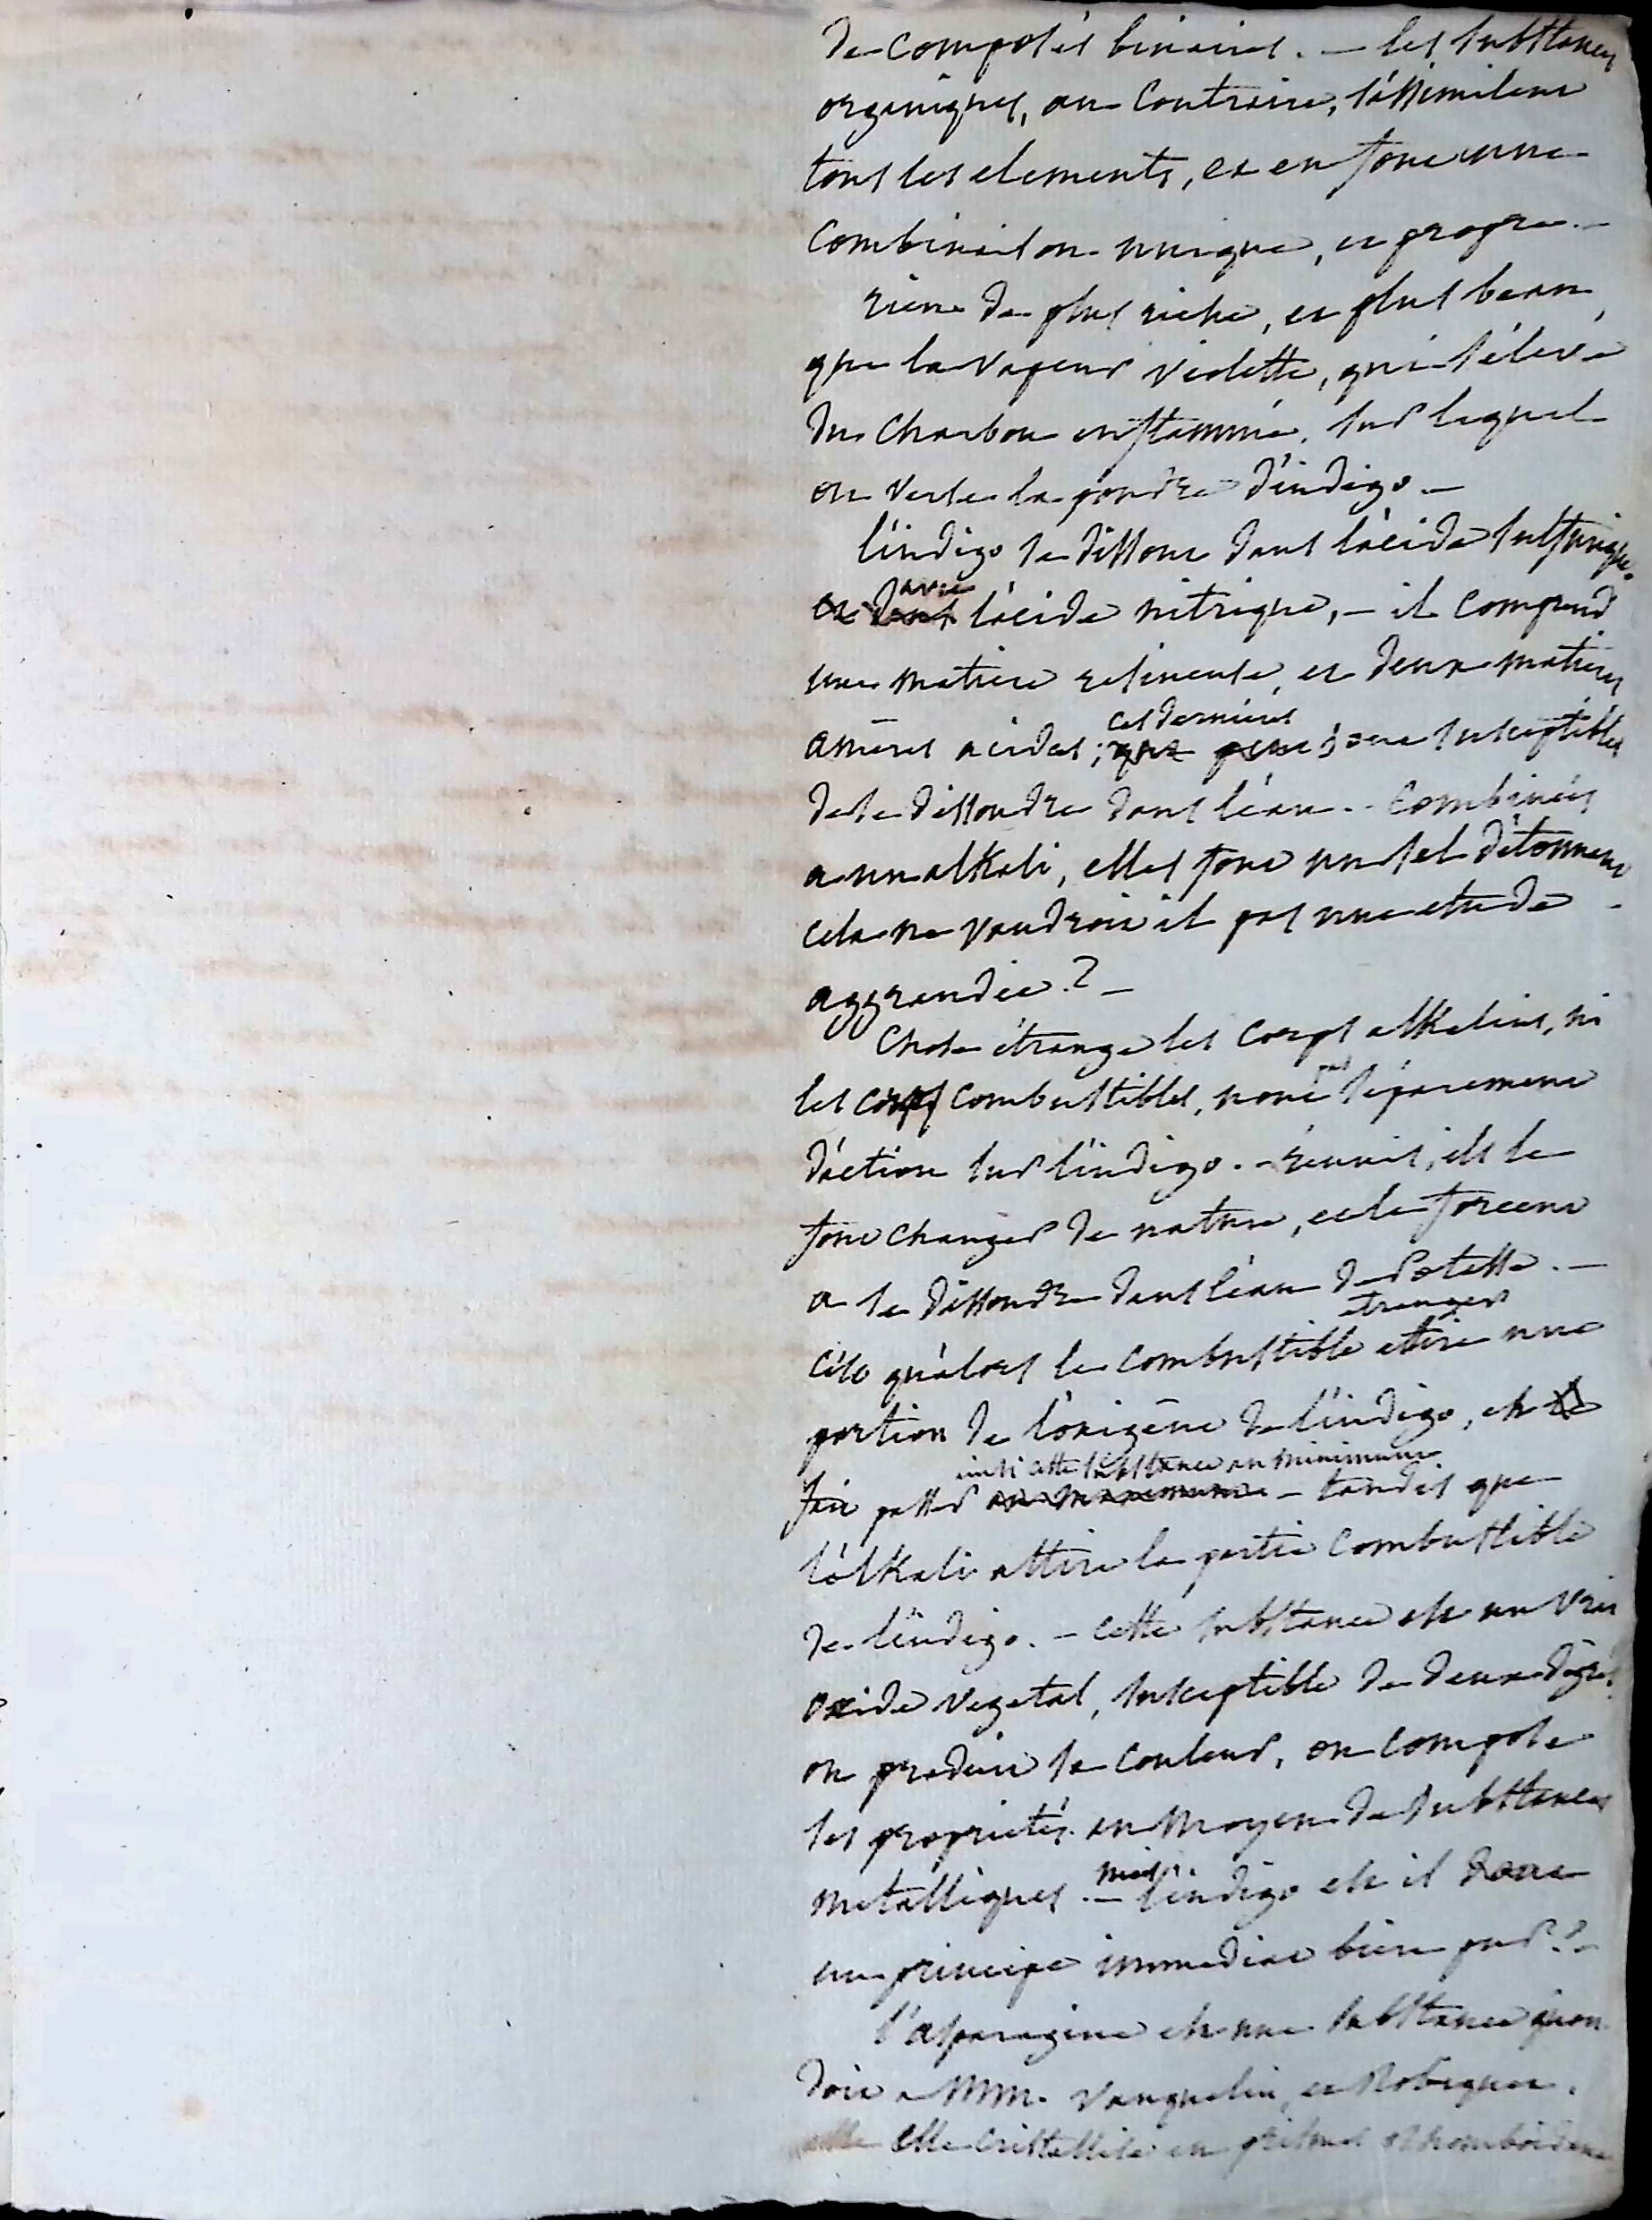 de composés binaires. — les substances
organiques, au contraire, s'assimilent
tous les elements, et en font une
combinaison unique, et propre. —
rien de plus riche, et plus beau,
que la vapeur violette, qui s'élève
du charbon enflammé, sur lequel
on verse la poudre d'indigo. —
l'indigo se dissout dans l'acide sulfurique.
et dans avec l'acide nitrique, — il comprend
une matiere resineuse, et deux matieres
amères acides; que ces dernières sont susceptibles
de se dissoudre dans l'eau. - combinées
a un alkali, elles font un sel détonnant
cela ne vaudroit il pas une etude -
aggrandie? —
Chose étrange les corps alkalins, ni
les corps combustibles, n'ont pas séparement
d'action sur l'indigo. - réunis, ils le
font changer de nature, et le forcent
a se dissoudre dans l'eau de Potasse. —
c'est qu'alors le combustible etranger attire une
portion de l'oxigène de l'indigo, et
fait passer au maximum ainsi cette substance au minimum — tandis que
l'alkali attire la partie combustible
de l'indigo. — cette substance est un vrai
oxide vegetal, susceptible de deux dégrés.
on produit sa couleur, on compose
ses proprietés au moyen de substances
metalliques. — mais l'indigo est il donc
un principe immediat bien pur? —
l'asparagine est une substance qu'on
doit a MM. Vauquelin, et Robiquet.
elle cristallise en prismes rhomboidaux